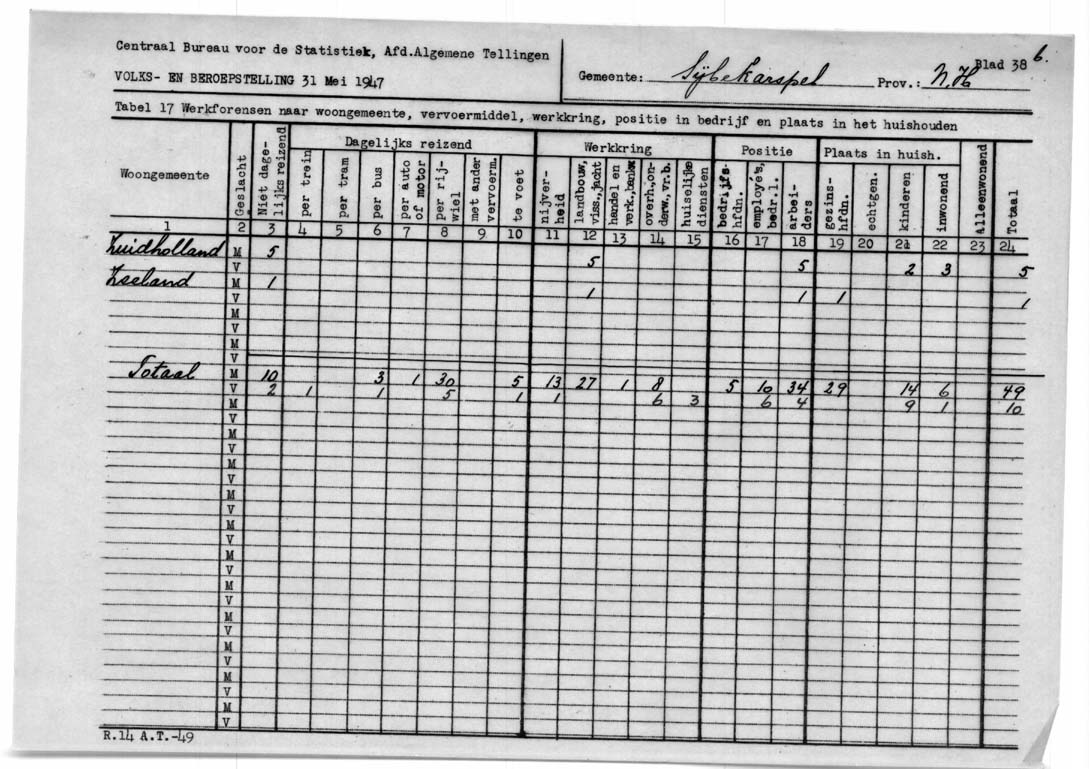 Centraal Bureau voor de Statistiek, Afd.Algemene Tellingen
VOLKS- EN BEROEPSTELLING 31 Mei 1947
Gemeente: Sijbekarspel Prov.: N.H. Blad 38 b.
Tabel 17 Werkforensen naar woongemeente, vervoermiddel, werkkring, positie in bedrijf en plaats in het huishouden
Woongemeente Geslacht Niet dage-lijks reizend Dagelijks reizend Werkkring Positie Plaats in huish. alleenwonend Totaal
per trein per tram per bus per auto of motor per rij-wiel met ander vervoerm. te voet nijver-heid landbouw, viss.,jacht handel en verk.,bankw overh.,on-derw.,vr.b. huiselijke diensten bedrijfs-hfdn. employé's, bedr.l. arbei-ders gezins-hfdn. echtgen. kinderen inwonend
1 2 3 4 5 6 7 8 9 10 11 12 13 14 15 16 17 18 19 20 21 22 23 24
Zuidholland M 5 5 5 2 3 5
V
Zeeland M 1 1 1 1 1
V
M
V
M
V
Totaal M 10 3 1 30 5 13 27 1 8 5 10 34 29 14 6 49
V 2 1 1 5 1 1 6 3 6 4 9 1 10
M
V
M
V
M
V
M
V
M
V
M
V
M
V
M
V
M
V
M
V
M
V
R.14 A.T.-49